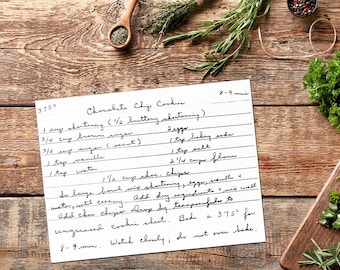 375°
8-9 min
Chocolate Chip Cookies
1 cup shortening (1/2 buttery shortening)
3/4 cup brown sugar 2 eggs
3/4 cup sugar (scant) 1 tsp baking soda
1 tsp vanilla 1 tsp salt
1 tsp water 2 1/4 cups flour
1 1/2 cup choc. chips.
In large bowl mix shortening, eggs, vanilla &
water, until creamy. Add dry ingredients & mix well
Add choc chips. Drop by teaspoonfuls to
ungreased cookie sheet. Bake @ 375° for
8-9 min. Watch closely, do not over bake.